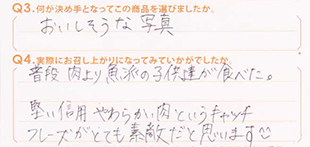 Q3.何が決め手となってこの商品を選びましたか。
おいしそうな写真
Q4.実際にお召し上がりになってみていかがでしたか。
普段 肉より魚派の子供達が食べた。
堅い信用 やわらかい肉というキャッチ
フレーズがとても素敵だと思います☺